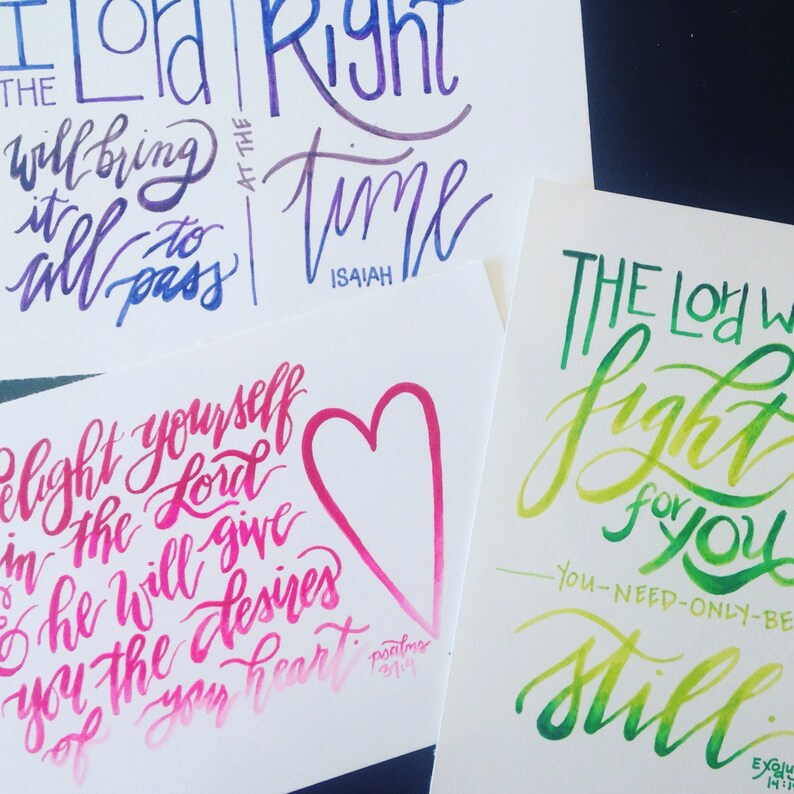 I Lord
THE
will bring
it
all to
pass
AT THE
Right
time
ISAIAH
Delight yourself
in the Lord
& he will give
you the desires
of your heart.
psalms
37:4
THE Lord W
fight
for you
YOU-NEED-ONLY-BE
still.
Exodu
14:14